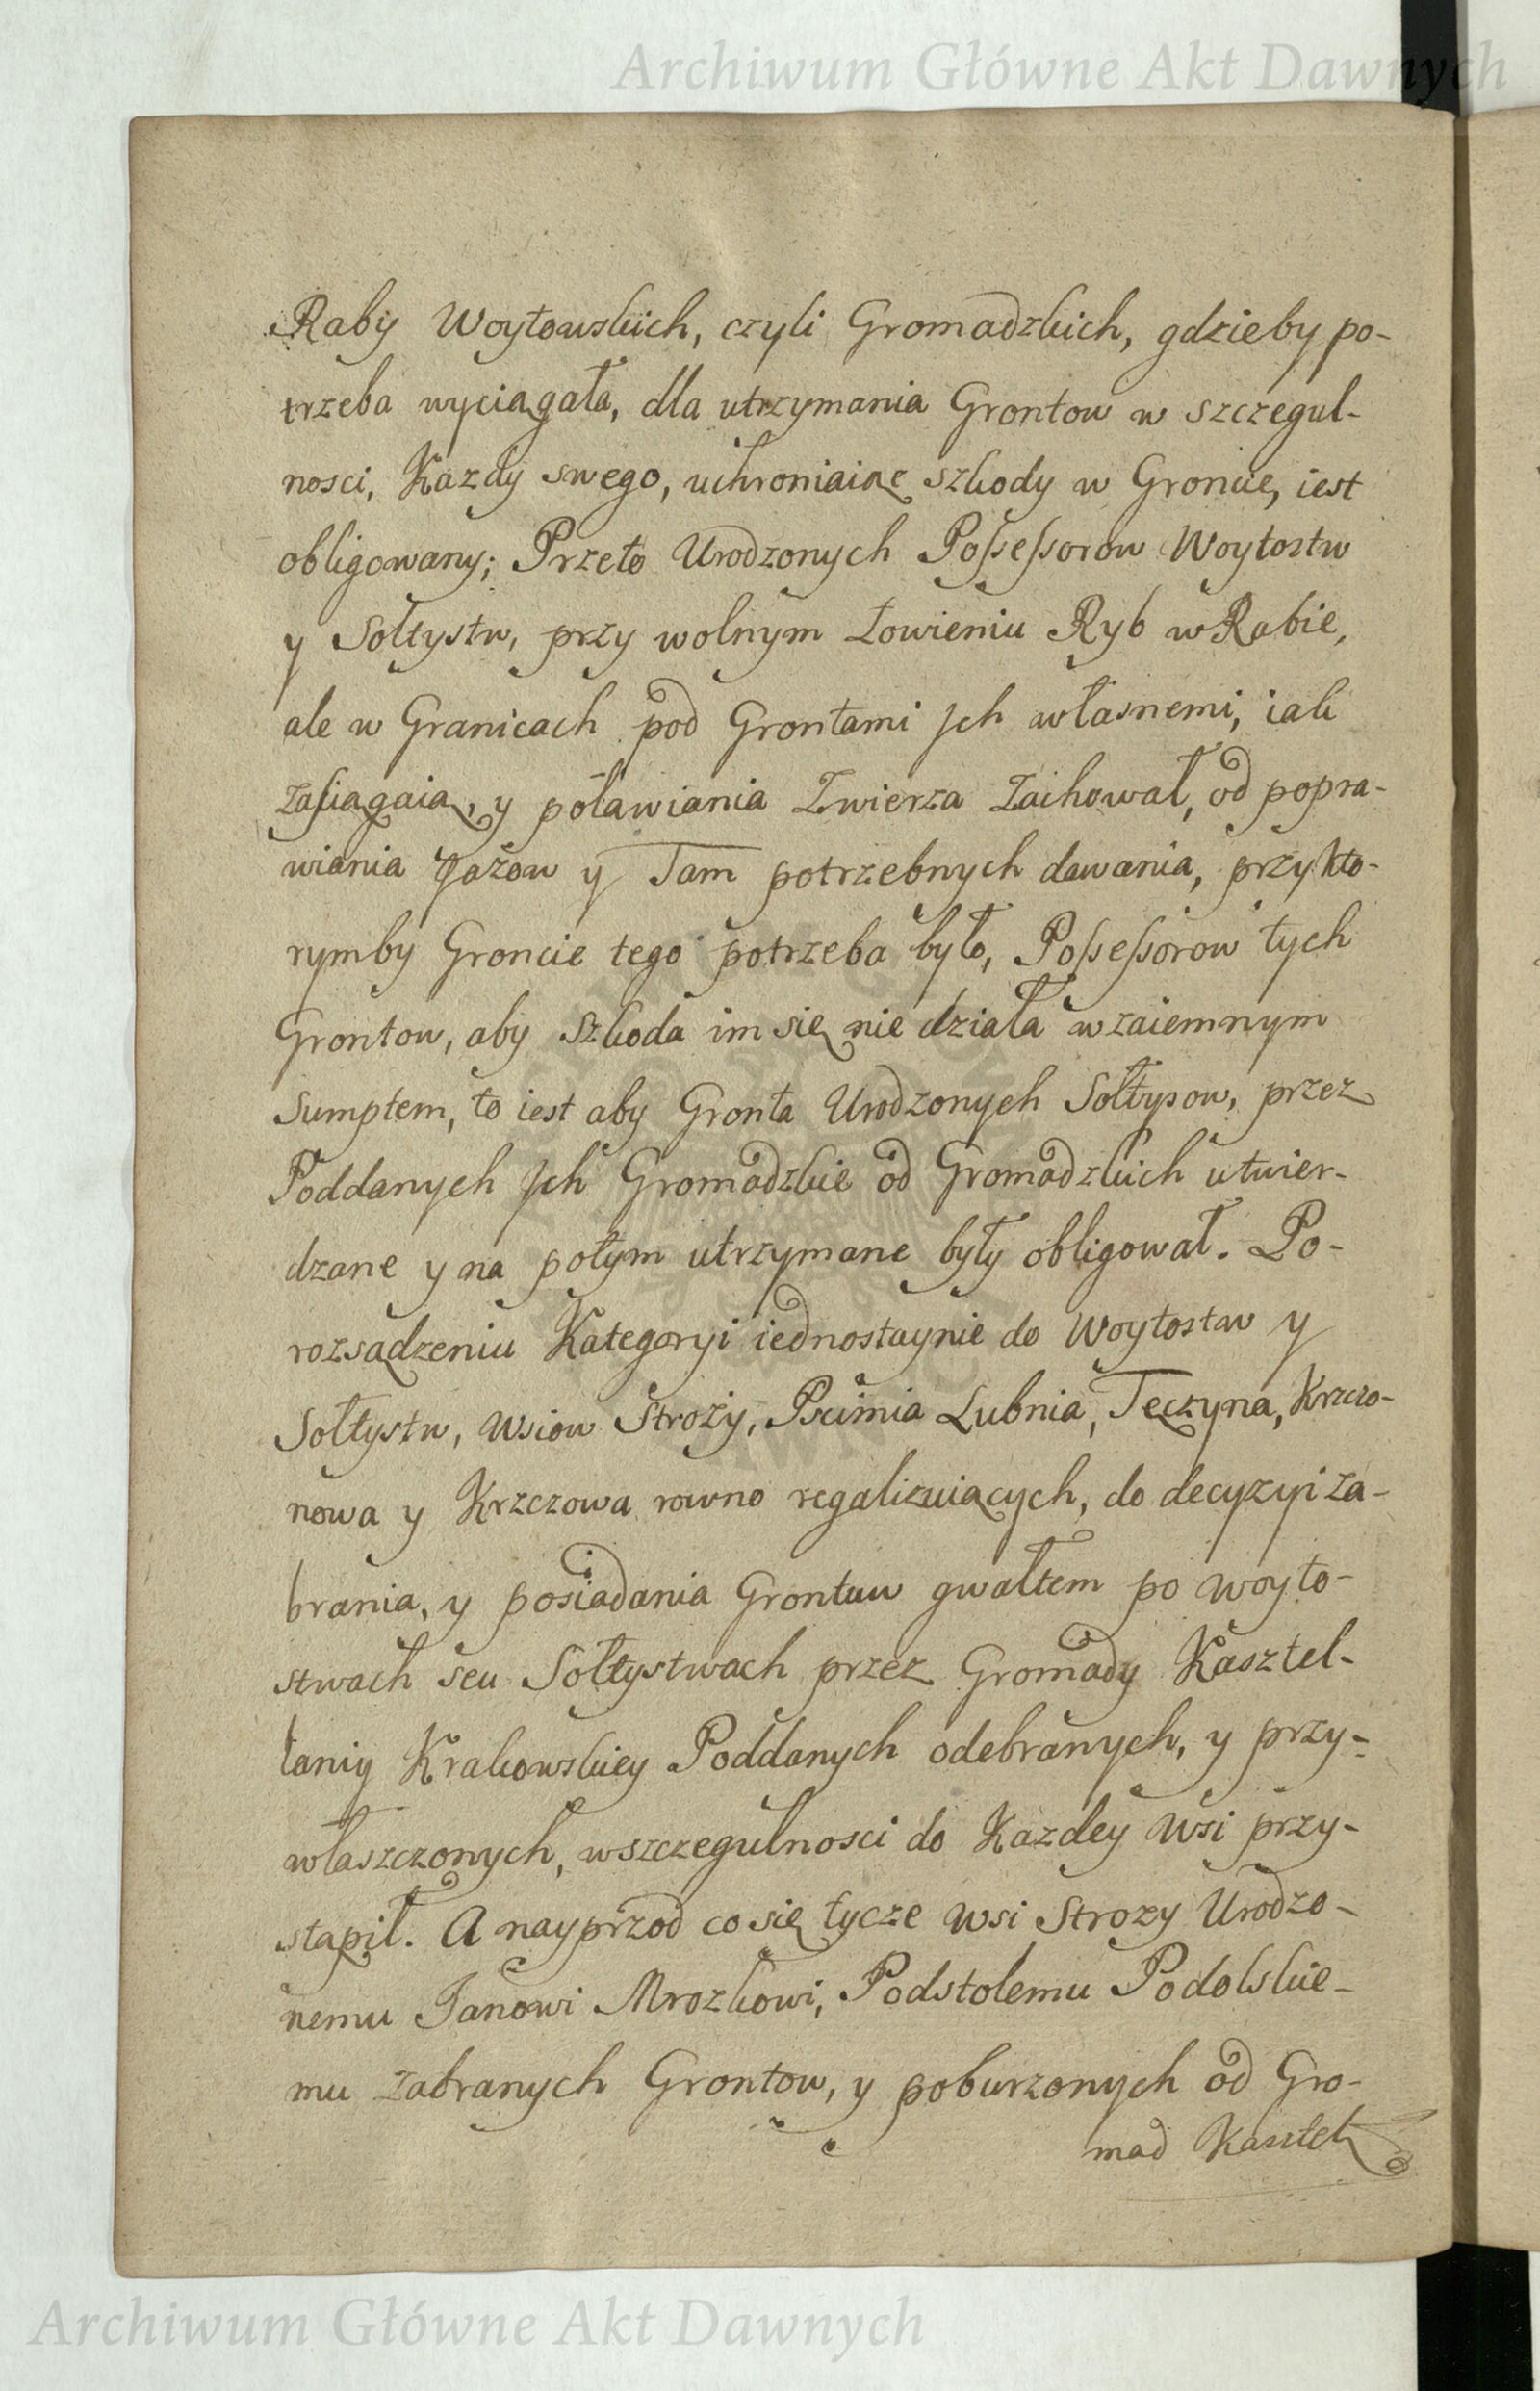 Archiwum Główne Akt Dawnych
Raby Woytowskich, czyli Gromadzkich, gdzieby po-
trzeba wyciągała, dla utrzymania Grontow w szczegul-
nosci, Kazdy swego, uchroniaiąc szkody w Groncie, iest
obligowany; Przeto Urodzonych Possessorow Woytostw
y Sołtystw, przy wolnym Łowieniu Ryb w Rabie,
ale w Granicach pod Grontami Jch własnemi, iak
zasiągaią, y poławiania Zwierza Zachował, od popra-
wiania Jazow y Tam potrzebnych dawania, przy kto-
rymby Groncie tego potrzeba było, Possessorow tych
Grontow, aby Szkoda im się nie działa wzaiemnym
Sumptem, to iest aby Gronta Urodzonych Sołtysow, przez
Poddanych Jch Gromadzkie od Gromadzkich utwier-
dzane y na potym utrzymane były obligował. Po-
rozsądzeniu Kategoryi iednostaynie do Woytostw y
Sołtystw, Wsiow Stroży, Pscimia Lubnia, Tęczyna, Krzczo-
nowa y Krzczowa rowno regalizuiących, do decyzyi Za-
brania, y posiadania Grontuw gwałtem po woyto-
stwach seu Sołtystwach przez Gromady Kasztel-
lanij Krakowskiey Poddanych odebranych, y przy-
właszczonych, wszczegulnosci do Kazdey Wsi przy-
stąpił. A nayprzod co się tycze Wsi Strozy Urodzo-
nemu Janowi Mrozkowi, Podstolemu Podolskie-
mu zabranych Grontow, y poburzonych od Gro-
mad Kasztel
Archiwum Główne Akt Dawnych